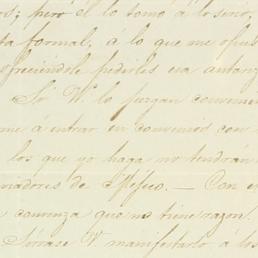 os; pero él lo tomó á lo serio,
ta formal, á lo que me opus
freciéndole pedirles esa autoriz
Si V. lo juzgan convenien
me á entrar en convenios con
los que yo haga no tendrán
viadores de Méjico. — Con e
convenza que no tiene razon.
Sírvase V. manifestarlo á los